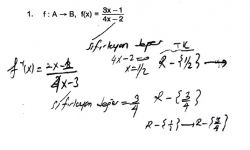 1. f : A → B, f(x) = 3x-1 / 4x-2
sıfırlayan değer
4x-2=0
x=1/2
R - {1/2} →
f⁻¹(x) = 2x-1 / 4x-3
sıfırlayan değer = 3/4
R - {3/4}
R - {1/2} → R - {3/4}